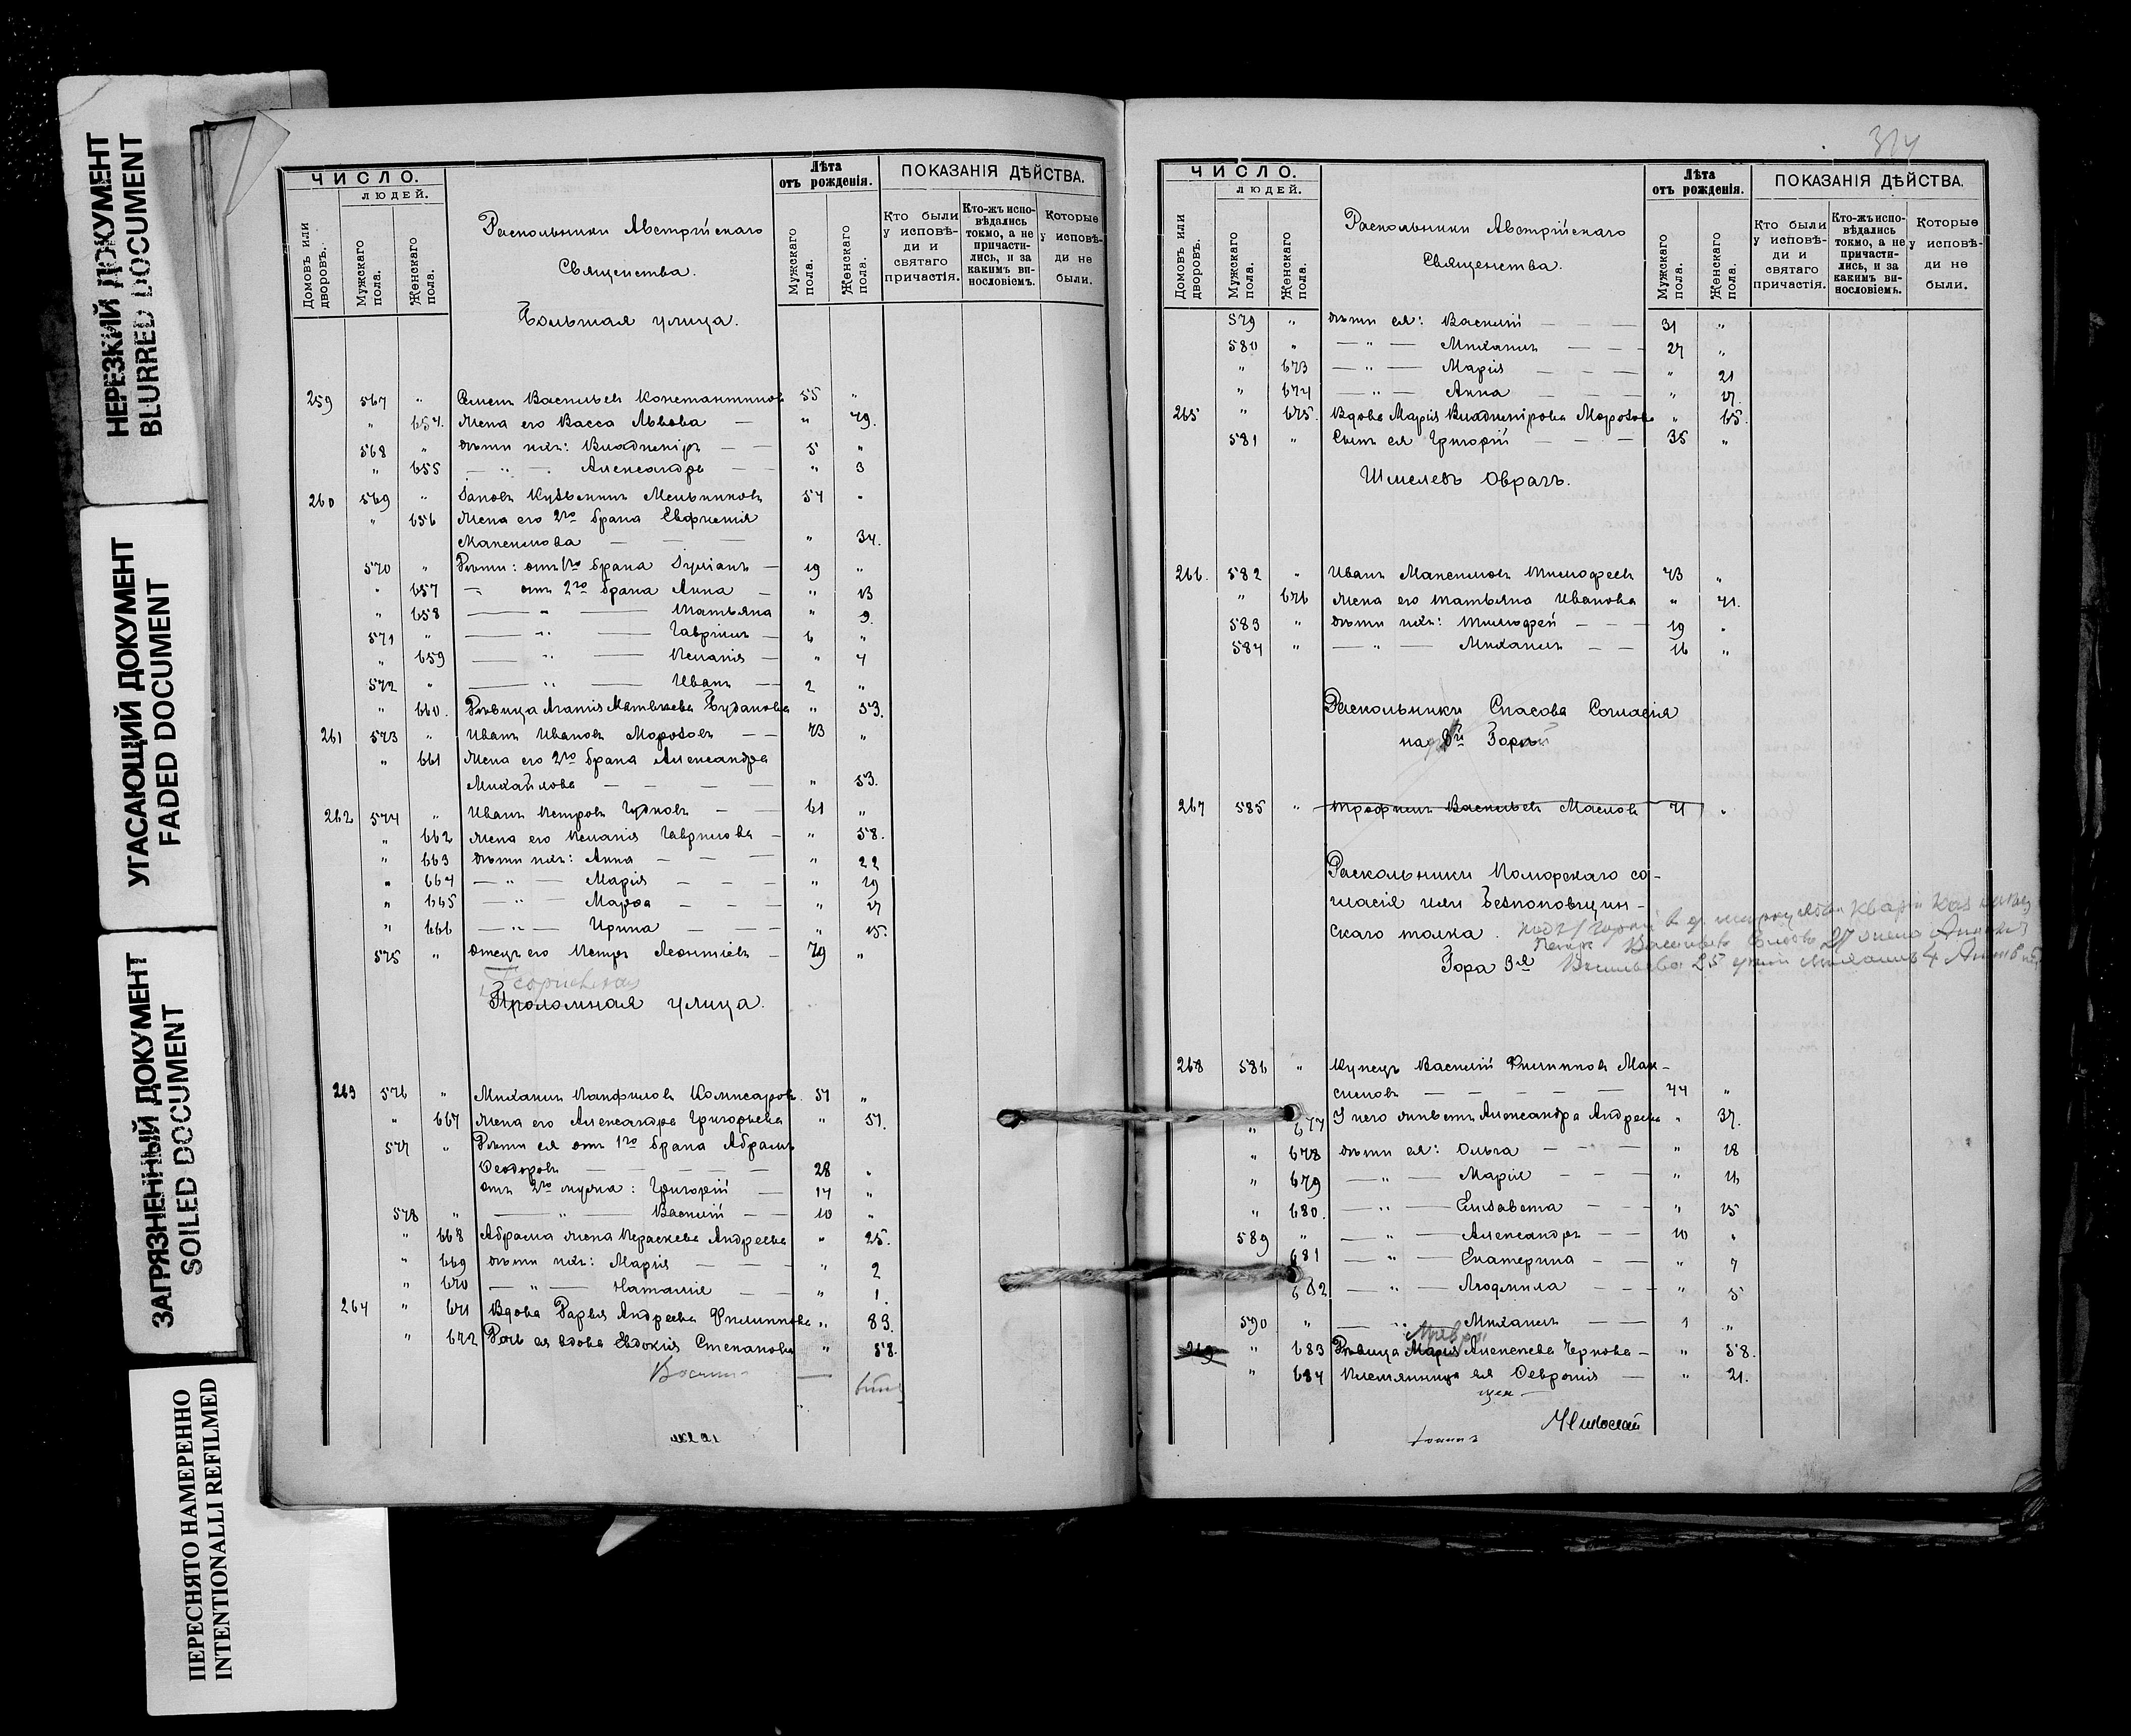 НЕРЕЗКИЙ ДОКУМЕНТ
BLURRED DOCUMENT
УГАСАЮЩИЙ ДОКУМЕНТ
FADED DOCUMENT
ЗАГРЯЗНЕННЫЙ ДОКУМЕНТ
SOILED DOCUMENT
ПЕРЕСНЯТО НАМЕРЕННО
INTENTIONALLI REFILMED
ЧИСЛО.
ЛЮДЕЙ.
Домовъ или дворовъ.
Мужскаго пола.
Женскаго пола.
Раскольники Австрійскаго
Священства.
Большая улица.
Лѣта
отъ рожденія.
Мужскаго пола.
Женскаго пола.
ПОКАЗАНІЯ ДѢЙСТВА.
Кто были у исповѣди и святаго причастія.
Кто-жъ исповѣдались токмо, а не причастились, и за какимъ винословіемъ.
Которые у исповѣди не были.
259 567 " Васильевъ Константиновъ 55 "
" 654. Жена его Васса Львова — " 49.
568 " дѣти ихъ: Владиміръ — 5 "
" 655 — " — Александра — " 3
260 569 " Кузьминъ Мельниковъ 54 "
" 656 Жена его 2го брака Евфимія
Максимова — — — " 34.
570 " Дѣти: отъ 1го брака — 19 "
" 657 — отъ 2го брака Анна — " 13
" 658 — " — Татьяна " 9.
571 " — " — Гавріилъ — 6 "
" 659 — " — Меланія — " 4
572 " — " — Иванъ — 2 "
" 660. Дѣвица Агапія Матвѣева " 53.
261 573 " Иванъ Ивановъ Морозовъ — — 73 "
" 661 Жена его 2го брака Александра
Михайлова — — — — " 53.
262 574 " Иванъ Петровъ Чудковъ — — 61 "
" 662 Жена его Меланія Гаврилова — " 58.
" 663 дѣти ихъ: Анна — — — " 22
" 664 — " — Марія — — — " 19
" 665 — " — Марѳа — — — " 17
" 666 — " — Ирина — — " 15.
575 " Отецъ его Петръ Леонтьевъ — 79 "
Георгіевская
Проломная улица.
263 576 " Михаилъ Панфиловъ Комисаровъ. 51 "
" 667 Жена его Александра Григорьева " 51.
577 " Дѣти ея отъ 1го брака Абрамъ
Ѳеодоровъ — — — — 28 "
отъ 2го мужа: Григорій — 14 "
578 " — " — Василій — — 10 "
" 668 Абрама жена Параскева Андреева " 25.
" 669 дѣти ихъ: Марія — — — " 2
" 670 — " — Наталія — — " 1.
264 " 671 Вдова Дарья Андреева Филиппова " 83.
" 672 Дочь ея вдова Евдокія Степанова " 58.
314
ЧИСЛО.
ЛЮДЕЙ.
Домовъ или дворовъ.
Мужскаго пола.
Женскаго пола.
Раскольники Австрійскаго
Священства.
Лѣта
отъ рожденія.
Мужскаго пола.
Женскаго пола.
ПОКАЗАНІЯ ДѢЙСТВА.
Кто были у исповѣди и святаго причастія.
Кто-жъ исповѣдались токмо, а не причастились, и за какимъ винословіемъ.
Которые у исповѣди не были.
579 " дѣти ея: Василій — — — 31 "
580 " — " — Михаилъ — — — 27 "
" 673 — " — Марія — — — " 21
" 674 — " — Анна — — — " 17.
265 " 675. Вдова Марія Владимірова Морозова " 65.
581 " Сынъ ея Григорій — — — 35 "
Шмелевъ Оврагъ.
266. 582 " Иванъ Максимовъ Тимофеевъ 73 "
" 676 Жена его Татьяна Иванова " 71.
583 " дѣти ихъ: Тимофей — — — 19 "
584 " — " — Михаилъ — — 16 "
Раскольники Спасова Согласія
на Горѣ
267 585 " Трофимъ Васильевъ Масловъ 71 "
Раскольники Поморскаго со-
гласія или Безпоповщин-
скаго толка.
Гора 3я
268 586 " Купецъ Василій Филипповъ Мак-
симовъ — — — 44 "
" 677 У него живетъ Александра Андреева " 37.
" 678 дѣти ея: Ольга — — — " 18
" 679 — " — Марія — — — " 16
" 680. — " — Елизавета — — " 15
589 " — " — Александръ — — 10 "
681 — " — Екатерина — — " 7
682 — " — Людмила — — — " 5
590 " — " — Михаилъ — — 1 "
269 " 683 Дѣвица Марія Алексеева Чернова — " 58.
" 684 Племянница ея Ѳевронія — " 21.
Николай